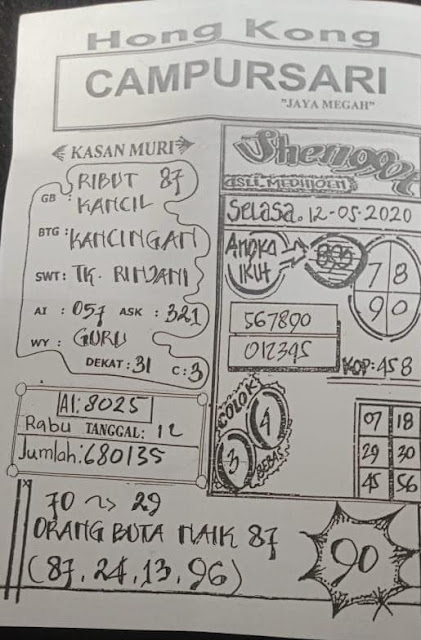 Hong Kong
CAMPURSARI
"JAYA MEGAH"
KASAN MURI
GB : RIBUT 87
KANCIL
BTG : KANCINGAN
SWT : TK. RINJANI
AI : 057 ASK : 321
WY : GURU
DEKAT : 31 C : 3
AI : 8025
Rabu TANGGAL : 12
Jumlah : 680135
ASLI MEDIIOEN
Selasa. 12-05-2020
ANGKA
IKUT
7 8
9 0
567890
012345
KOP : 458
COLOK
4
3
BEBAS
07 18
29 30
45 56
70 ~> 29
ORANG BUTA NAIK 87
(87, 24, 13, 96)
90